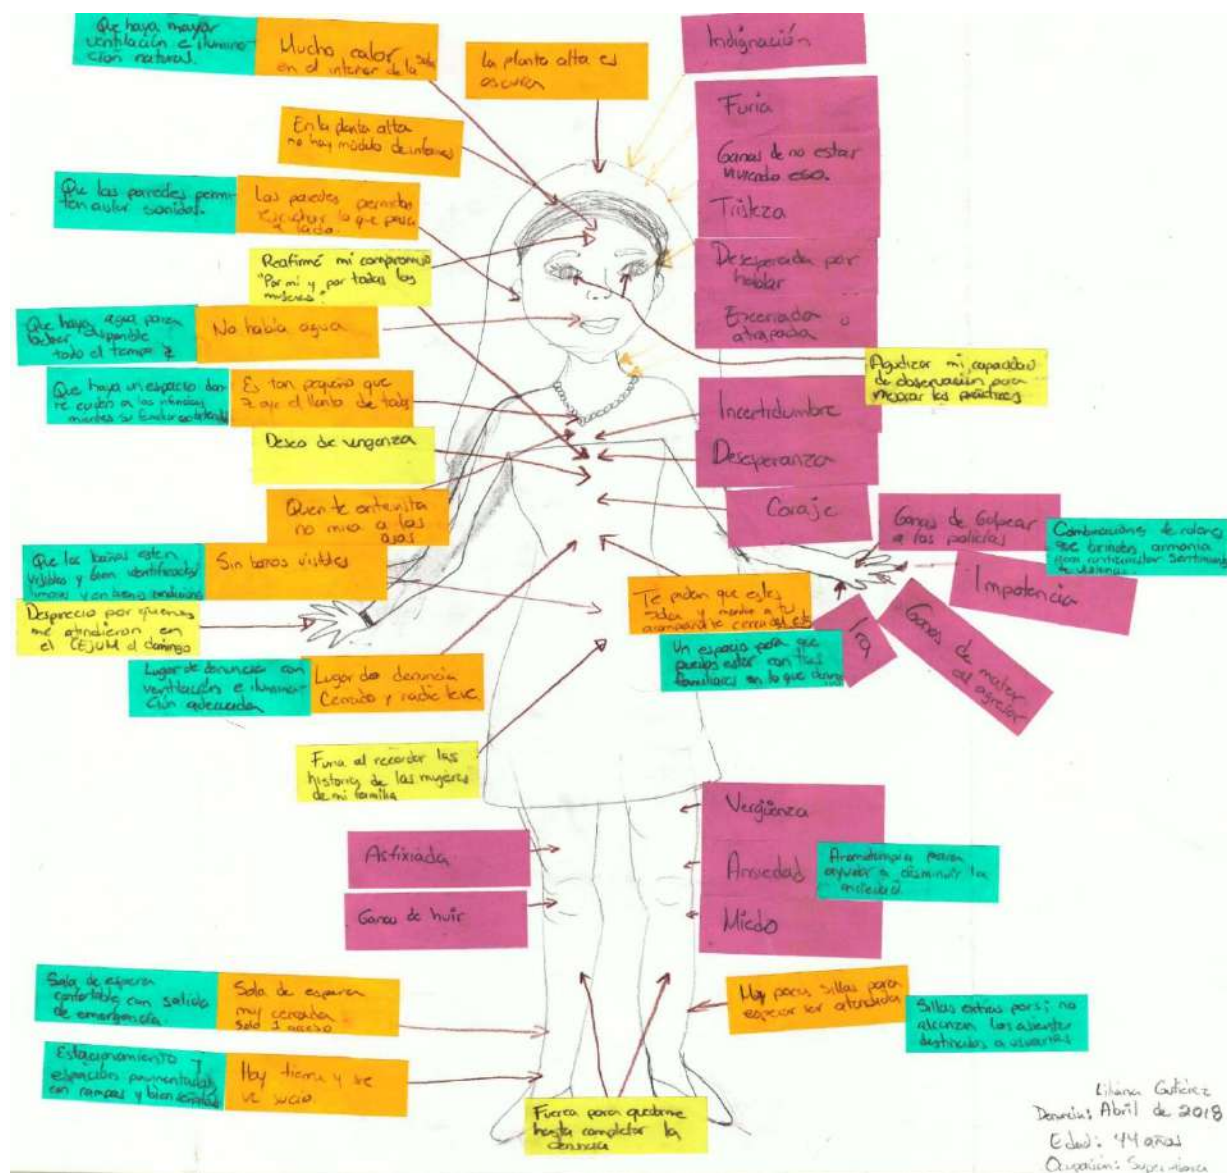 Que haya mayor
ventilación e ilumina-
ción natural.
Mucho calor
en el interior de la sala
La planta alta es
oscura
Indignación
Furia
Ganas de no estar
viviendo eso.
Tristeza
Desesperada por
hablar
atrapada
En la planta alta
no hay módulo de informes
Que las paredes permi-
tan aislar sonidos.
Las paredes permiten
escuchar lo que pasa
a lado.
Reafirmé mi compromiso
"Por mi y por todas las
mujeres."
Que haya agua para
beber disponible
todo el tiempo
No había agua
Agudizar mi capacidad
de observación para
mejorar las prácticas
Que haya un espacio don-
de cuiden a
mientras su
Es tan pequeño que
se oye el llanto de todas
Incertidumbre
Deseo de venganza
Desesperanza
Quien te entrevista
no mira a los
ojos
Coraje
Ganas de Golpear
a los policías
Combinaciones de colores
que brinden armonía
para contrarrestar
de violencia
Que los baños esten
visibles y bien identificados
limpios y en buenas condiciones
Sin baños visibles
Impotencia
Desprecio por quienes
me atendieron en
el CEJUM el domingo
Te piden que estes
sola y mandan a tu
acompañante
Un espacio para que
puedas estar con tus
familiares en lo que
Ira
Ganas de matar
al agresor
Lugar de denuncia con
ventilación e ilumina-
ción adecuada
Lugar de denuncia
Cerrado y nadie te ve
Furia al recordar las
historias de las mujeres
de mi familia
Vergüenza
Asfixiada
Ansiedad
Aromaterapia para
ayudar a disminuir la
ansiedad
Ganas de huir
Miedo
Sala de espera
confortable con salida
de emergencia.
Sala de espera
muy cerrada
Solo 1 acceso
Hay pocas sillas para
esperar ser atendida
Sillas extras por si no
alcanzan los asientos
destinados a usuarias
Estacionamiento y
espacios pavimentados
con rampas y bien
Hay tierra y se
ve sucio.
Fuerza para quedarme
hasta completar la
denuncia
Liliana Gutiérrez
Denuncia: Abril de 2018
Edad: 44 años
Ocupación: Supervisora